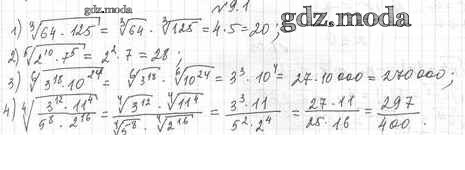 №9.1
gdz.moda
gdz.moda
1) ∛(64 · 125) = ∛64 · ∛125 = 4 · 5 = 20;
2) ⁵√(2¹⁰ · 7⁵) = 2² · 7 = 28;
3) ⁶√(3¹⁸ · 10²⁴) = ⁶√3¹⁸ · ⁶√10²⁴ = 3³ · 10⁴ = 27 · 10 000 = 270 000;
4) ⁴√(3¹² · 11⁴ / 5⁸ · 2¹⁶) = ⁴√3¹² · ⁴√11⁴ / ⁴√5⁸ · ⁴√2¹⁶ = 3³ · 11 / 5² · 2⁴ = 27 · 11 / 25 · 16 = 297 / 400.